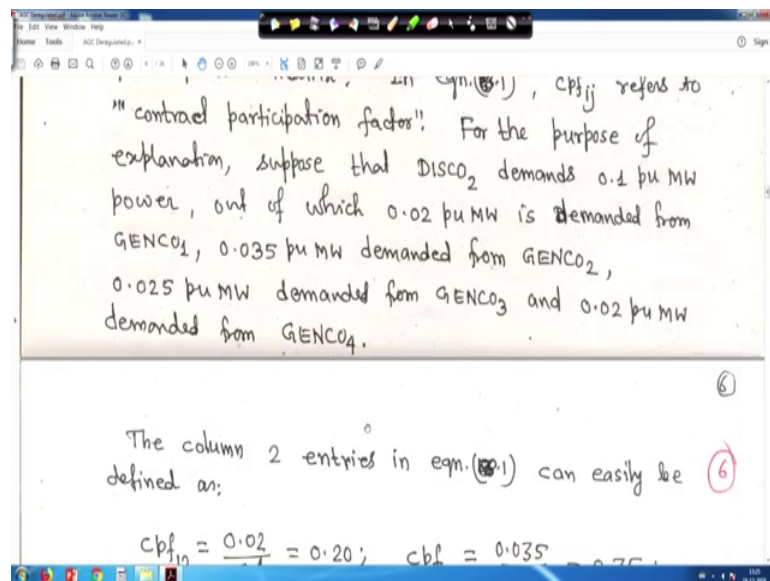 AGC Deregulated.pdf - Adobe Acrobat Reader DC
File Edit View Window Help
Home Tools AGC Deregulated.p... × Sign
In eqn.(1), cpfij refers to
"contract participation factor". For the purpose of
explanation, suppose that DISCO2 demands 0.1 pu MW
power, out of which 0.02 pu MW is demanded from
GENCO1, 0.035 pu MW demanded from GENCO2,
0.025 pu MW demanded from GENCO3 and 0.02 pu MW
demanded from GENCO4.
6
The column 2 entries in eqn.(1) can easily be 6
defined as:
cpf12 = 0.02 = 0.20; cpf = 0.035